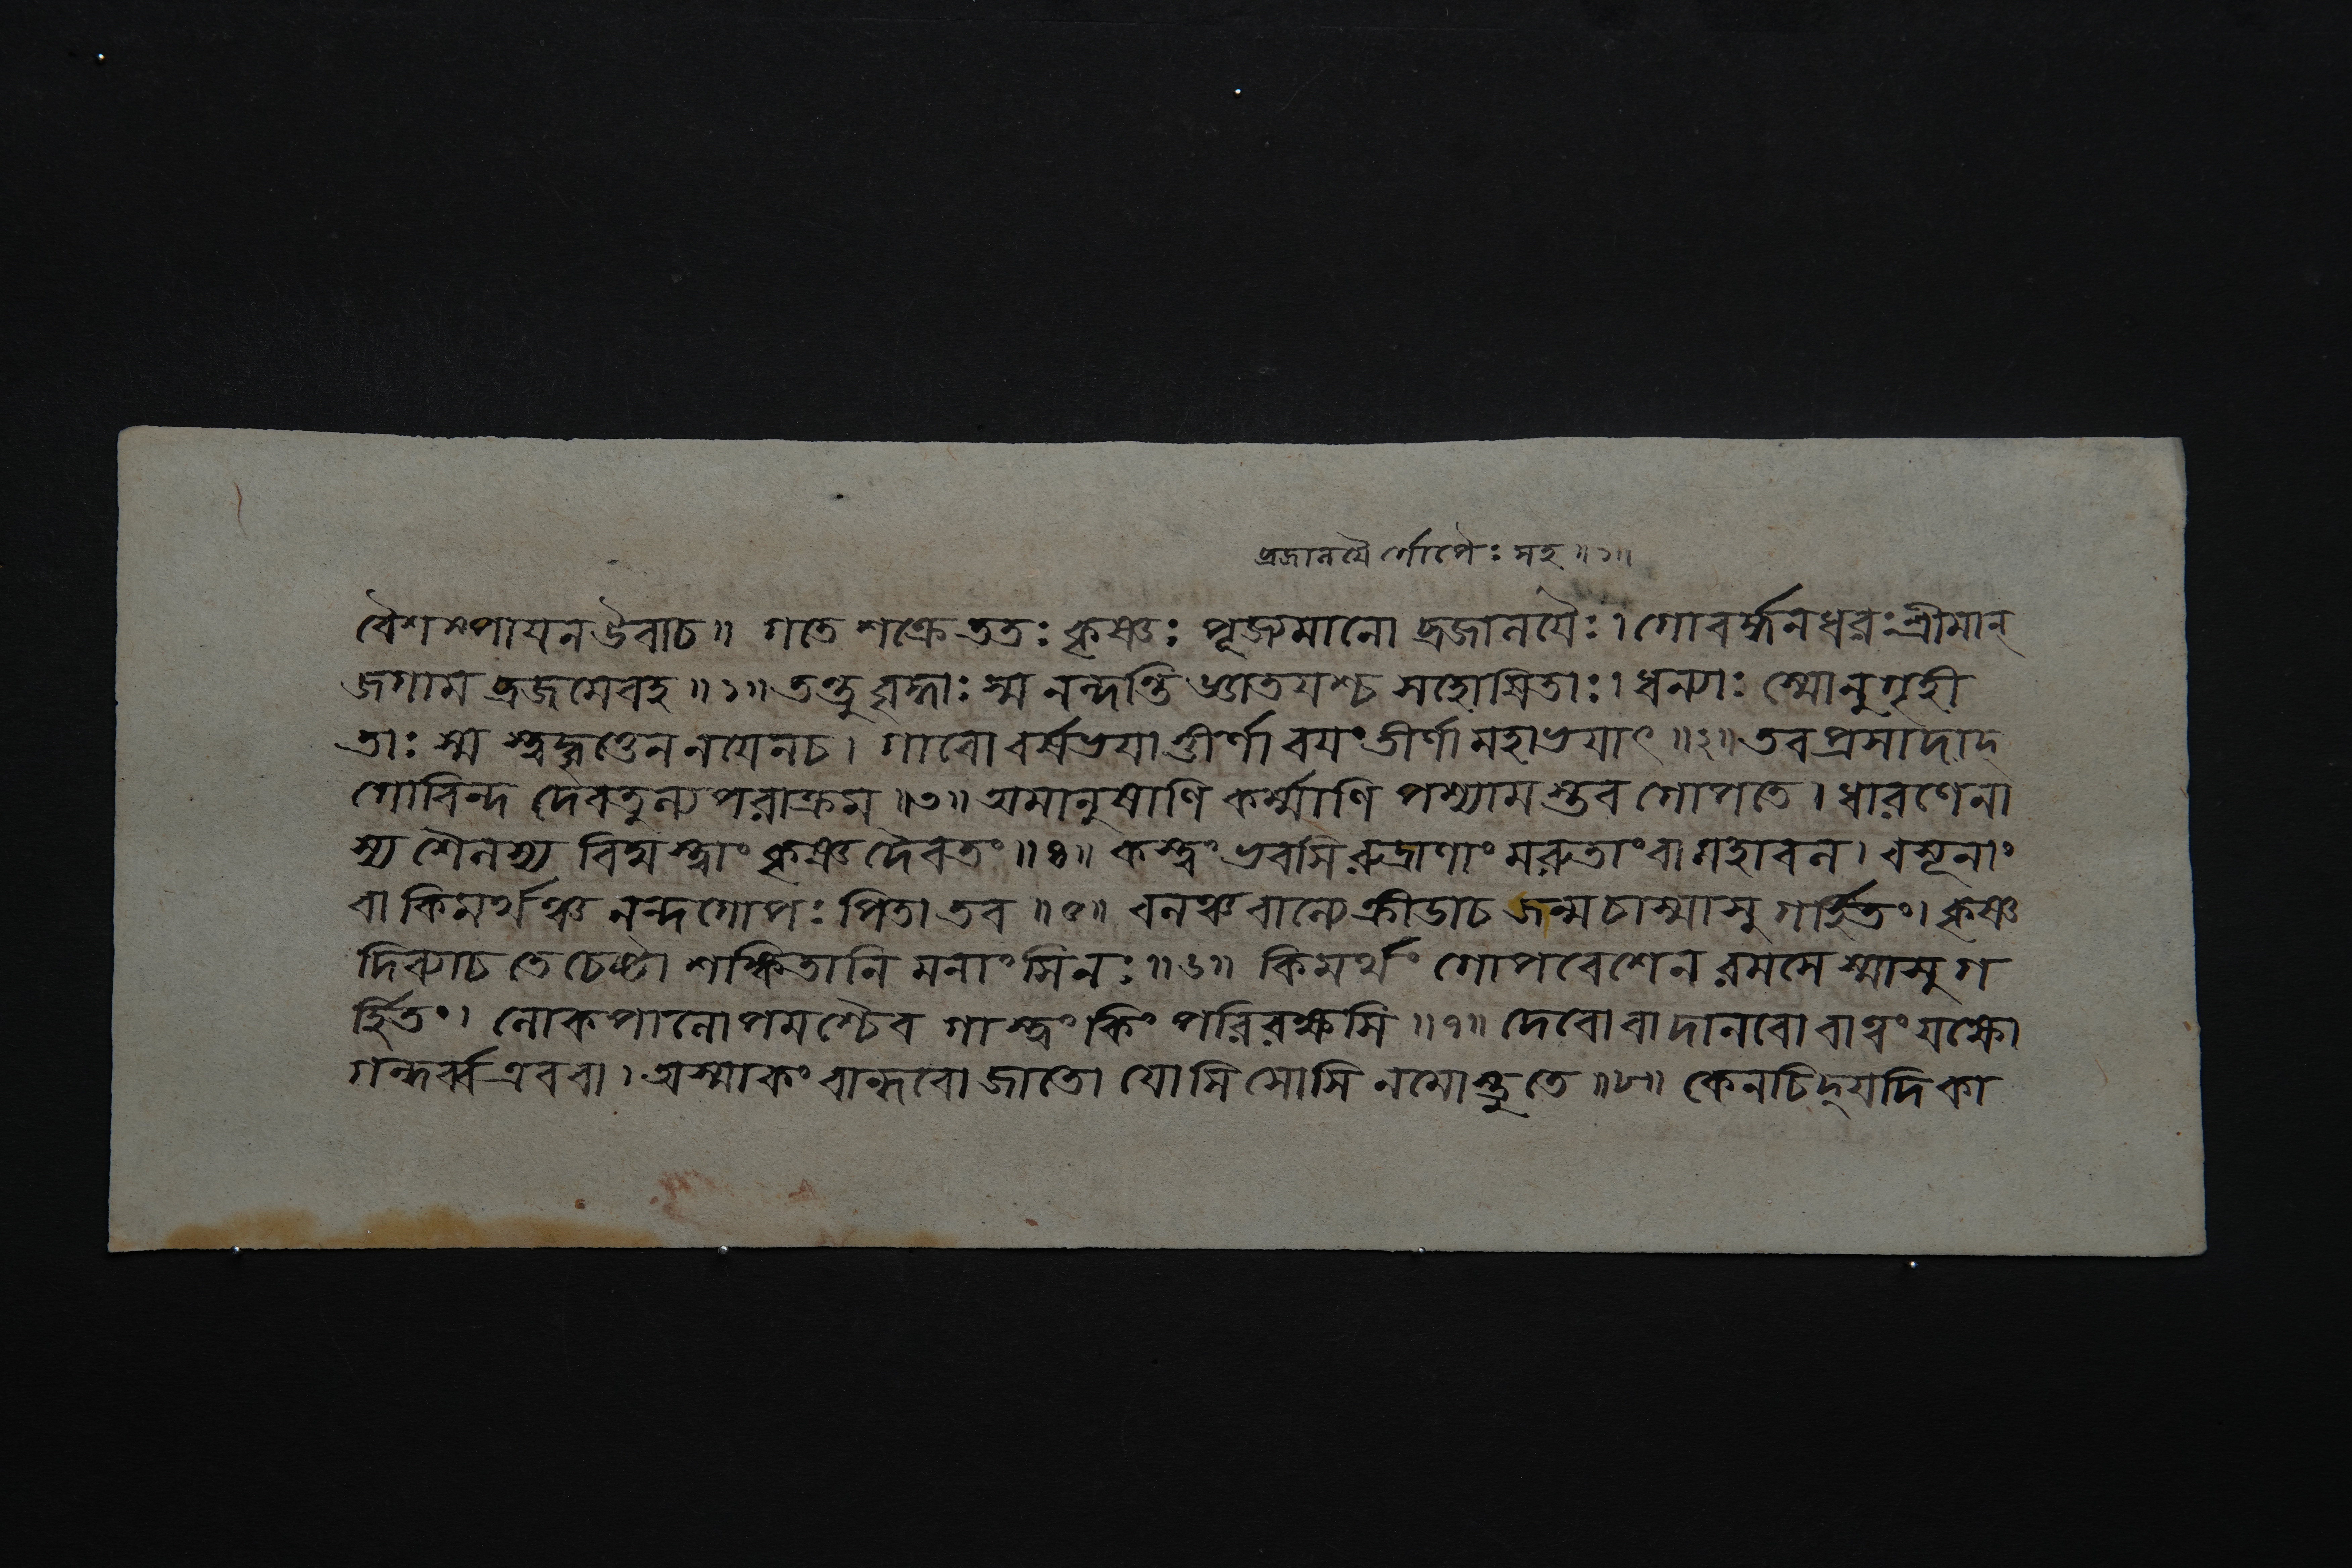 ব্রজালয়ৈ র্গোপৈঃ সহ॥১॥
বৈশম্পায়ন উবাচ॥ গতে শক্রে ততঃ কৃষ্ণঃ পূজ্যমানো ব্রজালয়ৈঃ। গোবর্দ্ধনধরঃ শ্রীমান্
জগাম ব্রজমেবহ॥১॥ তন্তু বৃদ্ধাঃ স্ম নন্দন্তি জ্ঞাতয়শ্চ সহোষিতাঃ। ধন্যাঃ স্মোনুগৃহী
তাঃ স্ম স্ত্বদ্বৃত্তেন নয়েনচ। গাবো বর্ষভয়াত্তীর্ণা বয়ং তীর্ণা মহাভয়াৎ॥২॥ তব প্রসাদাদ্
গোবিন্দ দেবতুল্য পরাক্রম॥৩॥ অমানুষাণি কর্ম্মাণি পশ্যাম স্তব গোপতে। ধারণেনা
স্য শৈলস্য বিদ্ম স্ত্বাং কৃষ্ণ দৈবতং॥৪॥ কস্ত্বং ভবসি রুদ্রাণাং মরুতাং বা মহাবল। বসূনাং
বা কিমর্থঞ্চ নন্দগোপঃ পিতা তব॥৫॥ বলঞ্চ বাল্যে ক্রীডাচ জন্ম চাস্মাসু গর্হিতং। কৃষ্ণ
দিব্যাচ তে চেষ্টা শঙ্কিতানি মনাংসিনঃ॥৬॥ কিমর্থং গোপবেশেন রমসে স্মাসু গ
র্হিতং। লোকপালোপমশ্চৈব গাস্ত্বং কিং পরিরক্ষসি॥৭॥ দেবো বা দানবো বাত্বং যক্ষো
গন্ধর্ব্ব এববা। অস্মাকং বান্ধবো জাতো যোসি সোসি নমোস্তুতে॥৮॥ কেনচিদ্ যদি কা